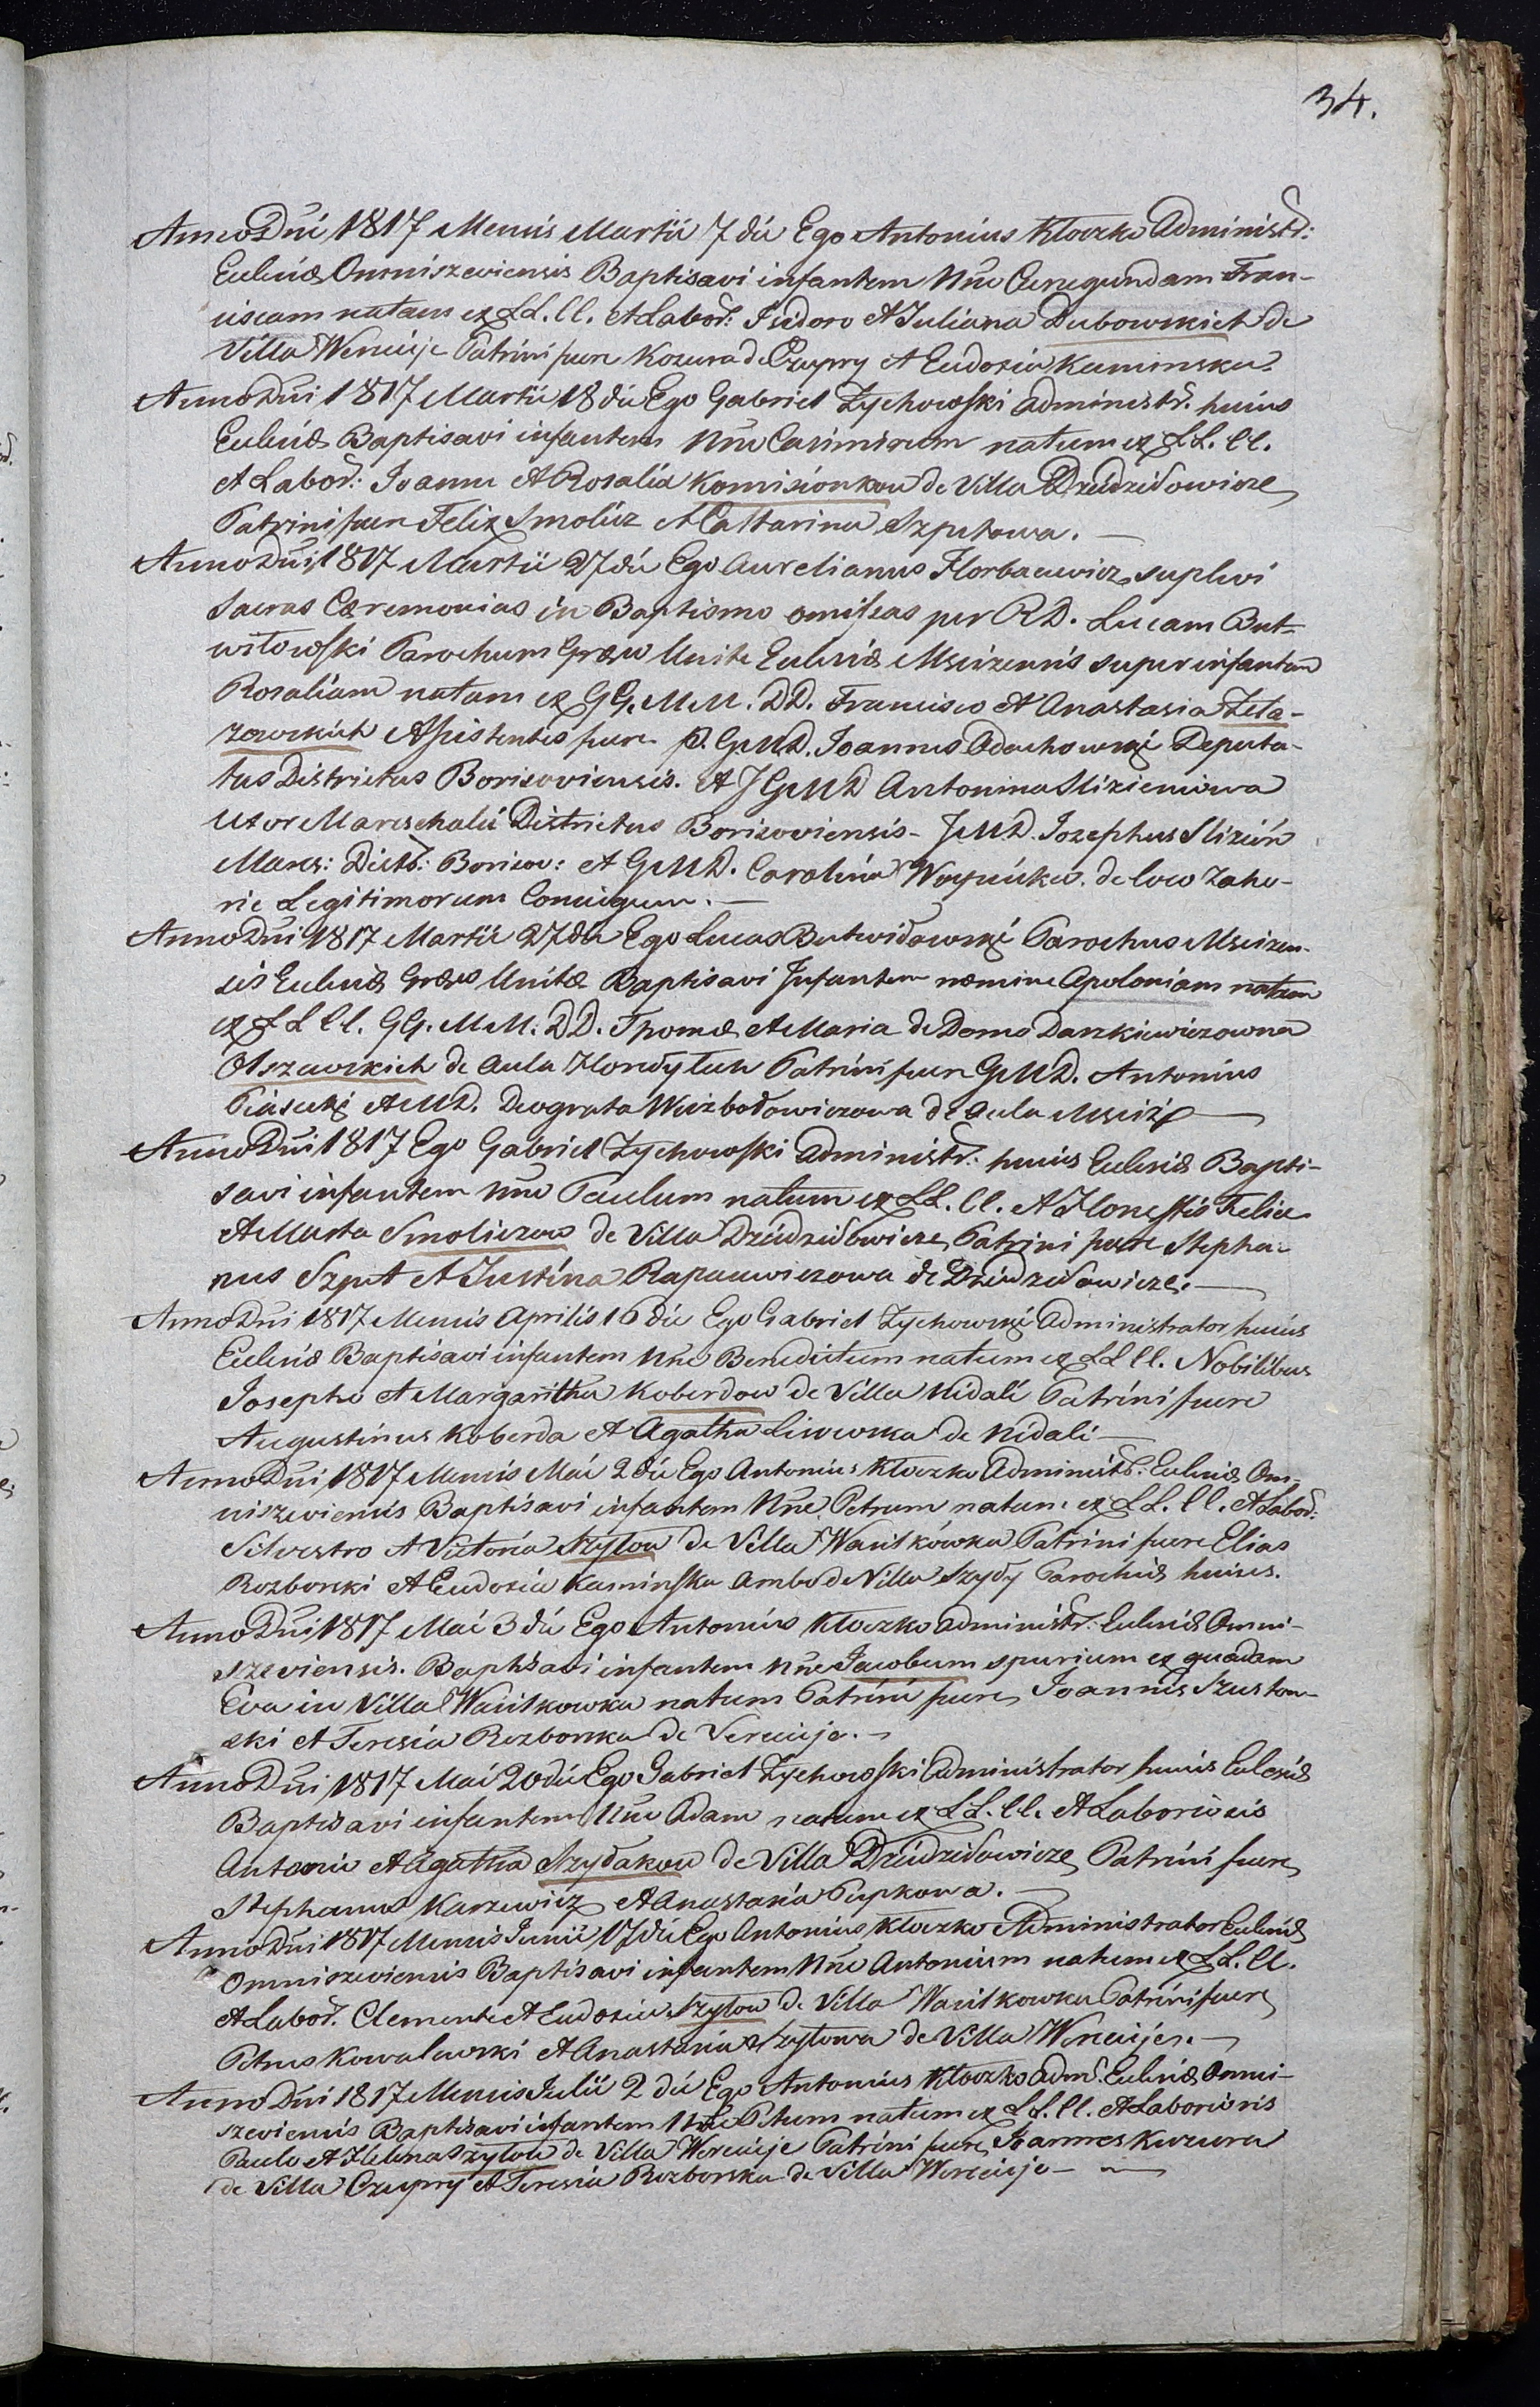 34.
Anno Dni 1817 Mensis Martii 7 die Ego Antonius Kłoczko Administr:
Eclesiæ Omniszeviensis Baptisavi infantem Nne Cunegundam Fran-
ciscam natam ex LL. CC. et Labor: Isidoro et Juliana Dubowskich de
Villa Wereicije Patrini fuere Kozura de Czupry et Eudoxia Kaminska.
Anno Dni 1817 Martii 18 die Ego Gabriel Zychowski Administr. huius
Eclesiæ Baptisavi infantem Nne Casimirum natum ex LL. CC.
et Labor: Joanne et Rosalia Komisionkow de Villa Dzidziłowicze
Patrini fuere Felix Smolicz et Catharina Szputowa.
Anno Dni 1817 Martii 27 die Ego Aurelianus Horbacewicz suplevi
Sacras Cæremonias in Baptismo omissas per RD. Lucam But-
wiłowski Parochum Græco Unitæ Eclesiæ Mscizensis super infantem
Rosaliam natam ex GG. MM. DD. Francisco et Anastasia Zela-
zowskich Assistentes fuere P. GMD. Joannes Odachowski Deputa-
tus Districtus Borisoviensis. et J GMD Antonina Slizieniowa
Uxor Mareschalii Districtus Borisoviensis - JMD. Josephus Slizień
Mares: Distr: Borisov: et GMD. Carolina Woynicka. de loco Zaho-
rie Legitimorum Coniugum.
Anno Dni 1817 Martii 27 die Ego Lucas Butwiłowski Parochus Mscizen-
sis Eclesiæ Græco Unitæ Baptisavi Infantem nomine Apoloniam natam
ex LL CC. GG. MM. DD. Thoma et Maria de Domo Daszkiewiczowna
Olszewskich de Aula Hordytuh Patrini fuere GMD. Antonius
Piasecki et MD. Deograta Weizbołowiczowa de Aula Msciż
Anno Dni 1817 Ego Gabriel Zychowski Administr: huius Eclesiæ Bapti-
savi infantem Nne Paulum natum ex LL. CC. et Honestis Felice
et Marta Smoliczow de Villa Dzidziłowicze, Patrini fuere Stepha-
nus Szput et Justina Rapacewiczowa de Dzidziłowicze.
Anno Dni 1817 Mensis Aprilis 16 die Ego Gabriel Zychowski Administrator huius
Eclesiæ Baptisavi infantem Nne Benedictum natum ex LL CC. Nobilibus
Josepho et Margaritha Koberdow de Villa Nidali Patrini fuere
Augustinus Koberda et Agatha Lisowska de Nidali
Anno Dni 1817 Mensis Maii 2 die Ego Antonius Kłoczko Administr: Eclesiæ Om-
niszeviensis Baptisavi infantem Nne Petrum natum ex LL. CC. et Labor:
Silvestro et Victoria Szyłow de Villa Wasilkówka Patrini fuere Elias
Rozborski et Eudoxia Kaminska Ambo de Villa Szyły Parochiæ huius.
Anno Dni 1817 Maii 3 die Ego Antonius Kłoczko Administr: Eclesiæ Omni-
szeviensis. Baptisavi infantem Nne Jacobum spurium ex quadam
Eva in Villa Wasilkowka natum Patrini fuere Joannes Szustow-
ski et Teresia Rozborska de Vereicije.
Anno Dni 1817 Maii 20 die Ego Gabriel Zychowski Administrator huius Eclesiæ
Baptisavi infantem Nne Adam natum ex LL. CC. et Laboriosis
Antonio et Agatha Szydakow de Villa Dzidziłowicze Patrini fuere
Stephanus Karzewicz et Anastasia Pupkowa.
Anno Dni 1817 Mensis Junii 17 die Ego Antonius Kłoczko Administrator Eclesiæ
Omniszeviensis Baptisavi infantem Nne Antonium natum ex LL. CC.
et Labor. Clemente et Eudoxia Szyłow de Villa Wasilkowka Patrini fuere
Petrus Kowalewski et Anastasia Szyłowa de Villa Wereicije.
Anno Dni 1817 Mensis Julii 2 die Ego Antonius Kłoczko Adm. Eclesiæ Omni-
szeviensis Baptisavi infantem Nne Petrum natum ex LL. CC. et Laboriosis
Paulo et Helena Szyłow de Villa Wereicije Patrini fuere Joannes Kuzura
de Villa Czupry et Teresia Rozborska de Villa Wereicije